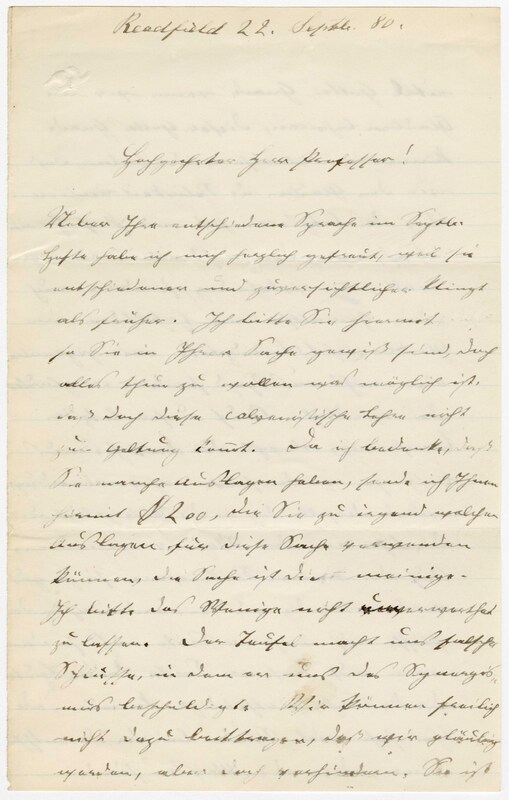 Readfield 22. Septbr. 80.
Hochgeehrter Herr Professor!
Ueber Ihre entschiedene Sprache im Septbr.
Hefte habe ich mich herzlich gefreut, weil sie
entschiedener und zuversichtlicher klingt
als früher. Ich bitte Sie hiermit
so Sie in Ihrer Sache gewiß sind, doch
alles thun zu wollen was möglich ist,
daß doch diese calvinistische Lehre nicht
zur Geltung kommt. Da ich bedenke, daß
Sie manche Auslagen haben, sende ich Ihnen
hiermit $200, die Sie zu irgend welchen
Auslagen für diese Sache verwenden
können, die Sache ist die meinige.
Ich bitte das Wenige nicht unverwerthet
zu lassen. Der Teufel macht uns falsche
Schlüsse, in dem er uns des Synergis-
mus beschuldigt. Wir können freilich
nicht dazu beitragen, daß wir gläubig
werden, aber doch verhindern. Sie ist